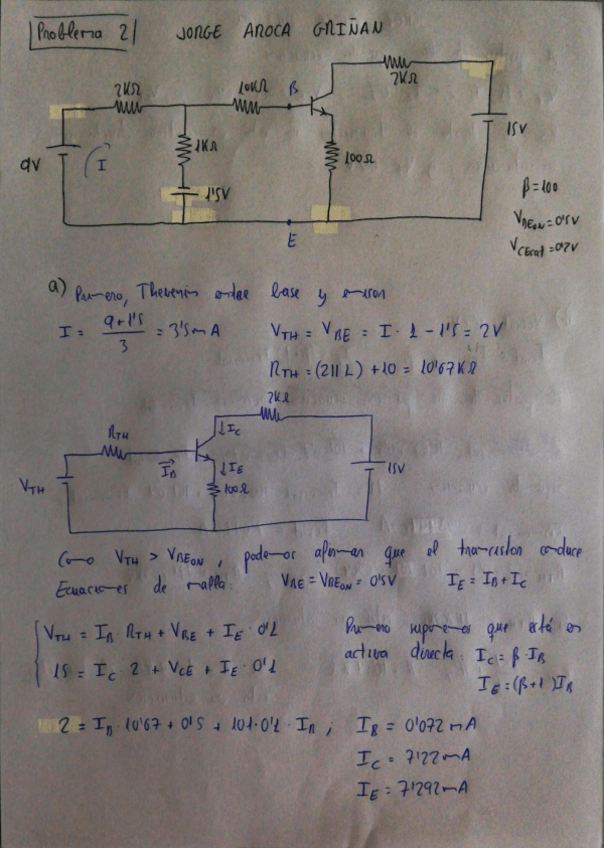 Problema 2
JORGE AROCA GRIÑAN
2KΩ
10KΩ
B
2KΩ
9V
I
1KΩ
1'5V
100Ω
15V
E
β=100
VBEON=0'5V
VCEsat=0'2V
a) Primero, Thevenin entre base y emisor
I = 9+1'5/3 = 3'5mA
VTH = VBE = I · 1 - 1'5 = 2V
RTH = (2||1) + 10 = 10'67KΩ
RTH
2KΩ
↓IC
VTH
IB
↓IE
100Ω
15V
Como VTH > VBEON, podemos afirmar que el transistor conduce
Ecuaciones de malla: VBE = VBEON = 0'5V IE = IB + IC
VTH = IB · RTH + VBE + IE · 0'1
15 = IC · 2 + VCE + IE · 0'1
Primero suponemos que está en
activa directa: IC = β · IB
IE = (β+1)IB
2 = IB · 10'67 + 0'5 + 101·0'1 · IB ; IB = 0'072mA
IC = 7'22mA
IE = 7'292mA